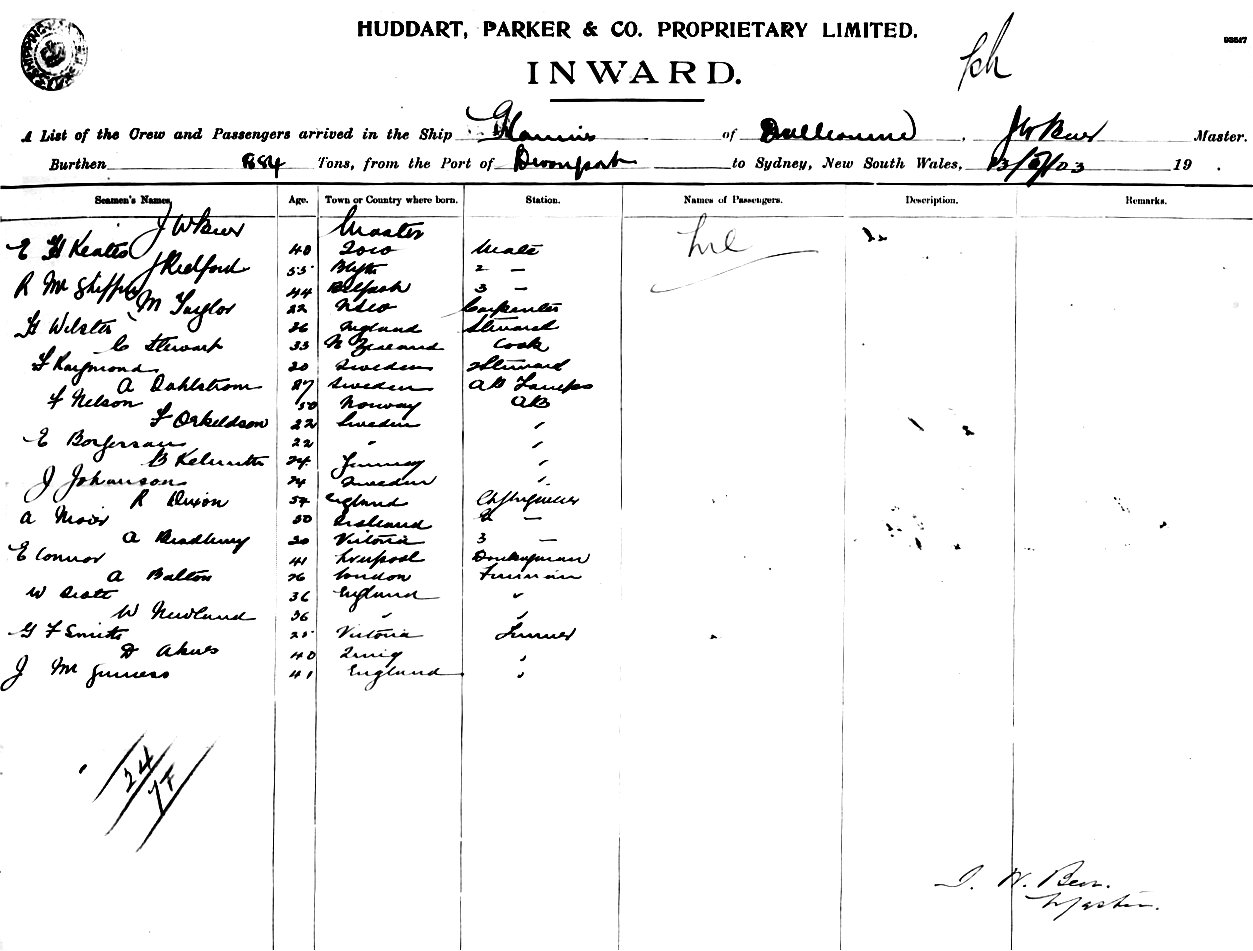 HUDDART, PARKER & CO. PROPRIETARY LIMITED.
INWARD.
A List of the Crew and Passengers arrived in the Ship of Melbourne, J W Beer Master.
Burthen 884 Tons, from the Port of Devonport to Sydney, New South Wales, 19 .
Seamen's Names. Age. Town or Country where born. Station. Names of Passengers. Description. Remarks.
J W Beer Master
E H Keates 40 Mate
J Redford 55 Blyth 2 —
R Mc 44 Belfast 3 —
M Taylor 22 NSW Carpenter
H Webster 36 England Steward
C Stewart 33 N Zealand Cook
F Raymond 20 Sweden Steward
A Dahlstrom 27 Sweden AB Lamps
F Nelson 50 Norway AB
F Orkeldson 22 Sweden "
E 22 " "
B 24 "
J Johanson 24 Sweden "
R Dixon 54 England
A Moir 50 2 —
A Bradbury 20 Victoria 3 —
E Connor 41 Liverpool Donkeyman
A Balton 26 London Fireman
W Scott 36 England "
W Newland 36 " "
G F Smith 25 Victoria Trimmer
D 40 "
J Mc Guiness 41 England "
24
J. W. Beer.
Master.